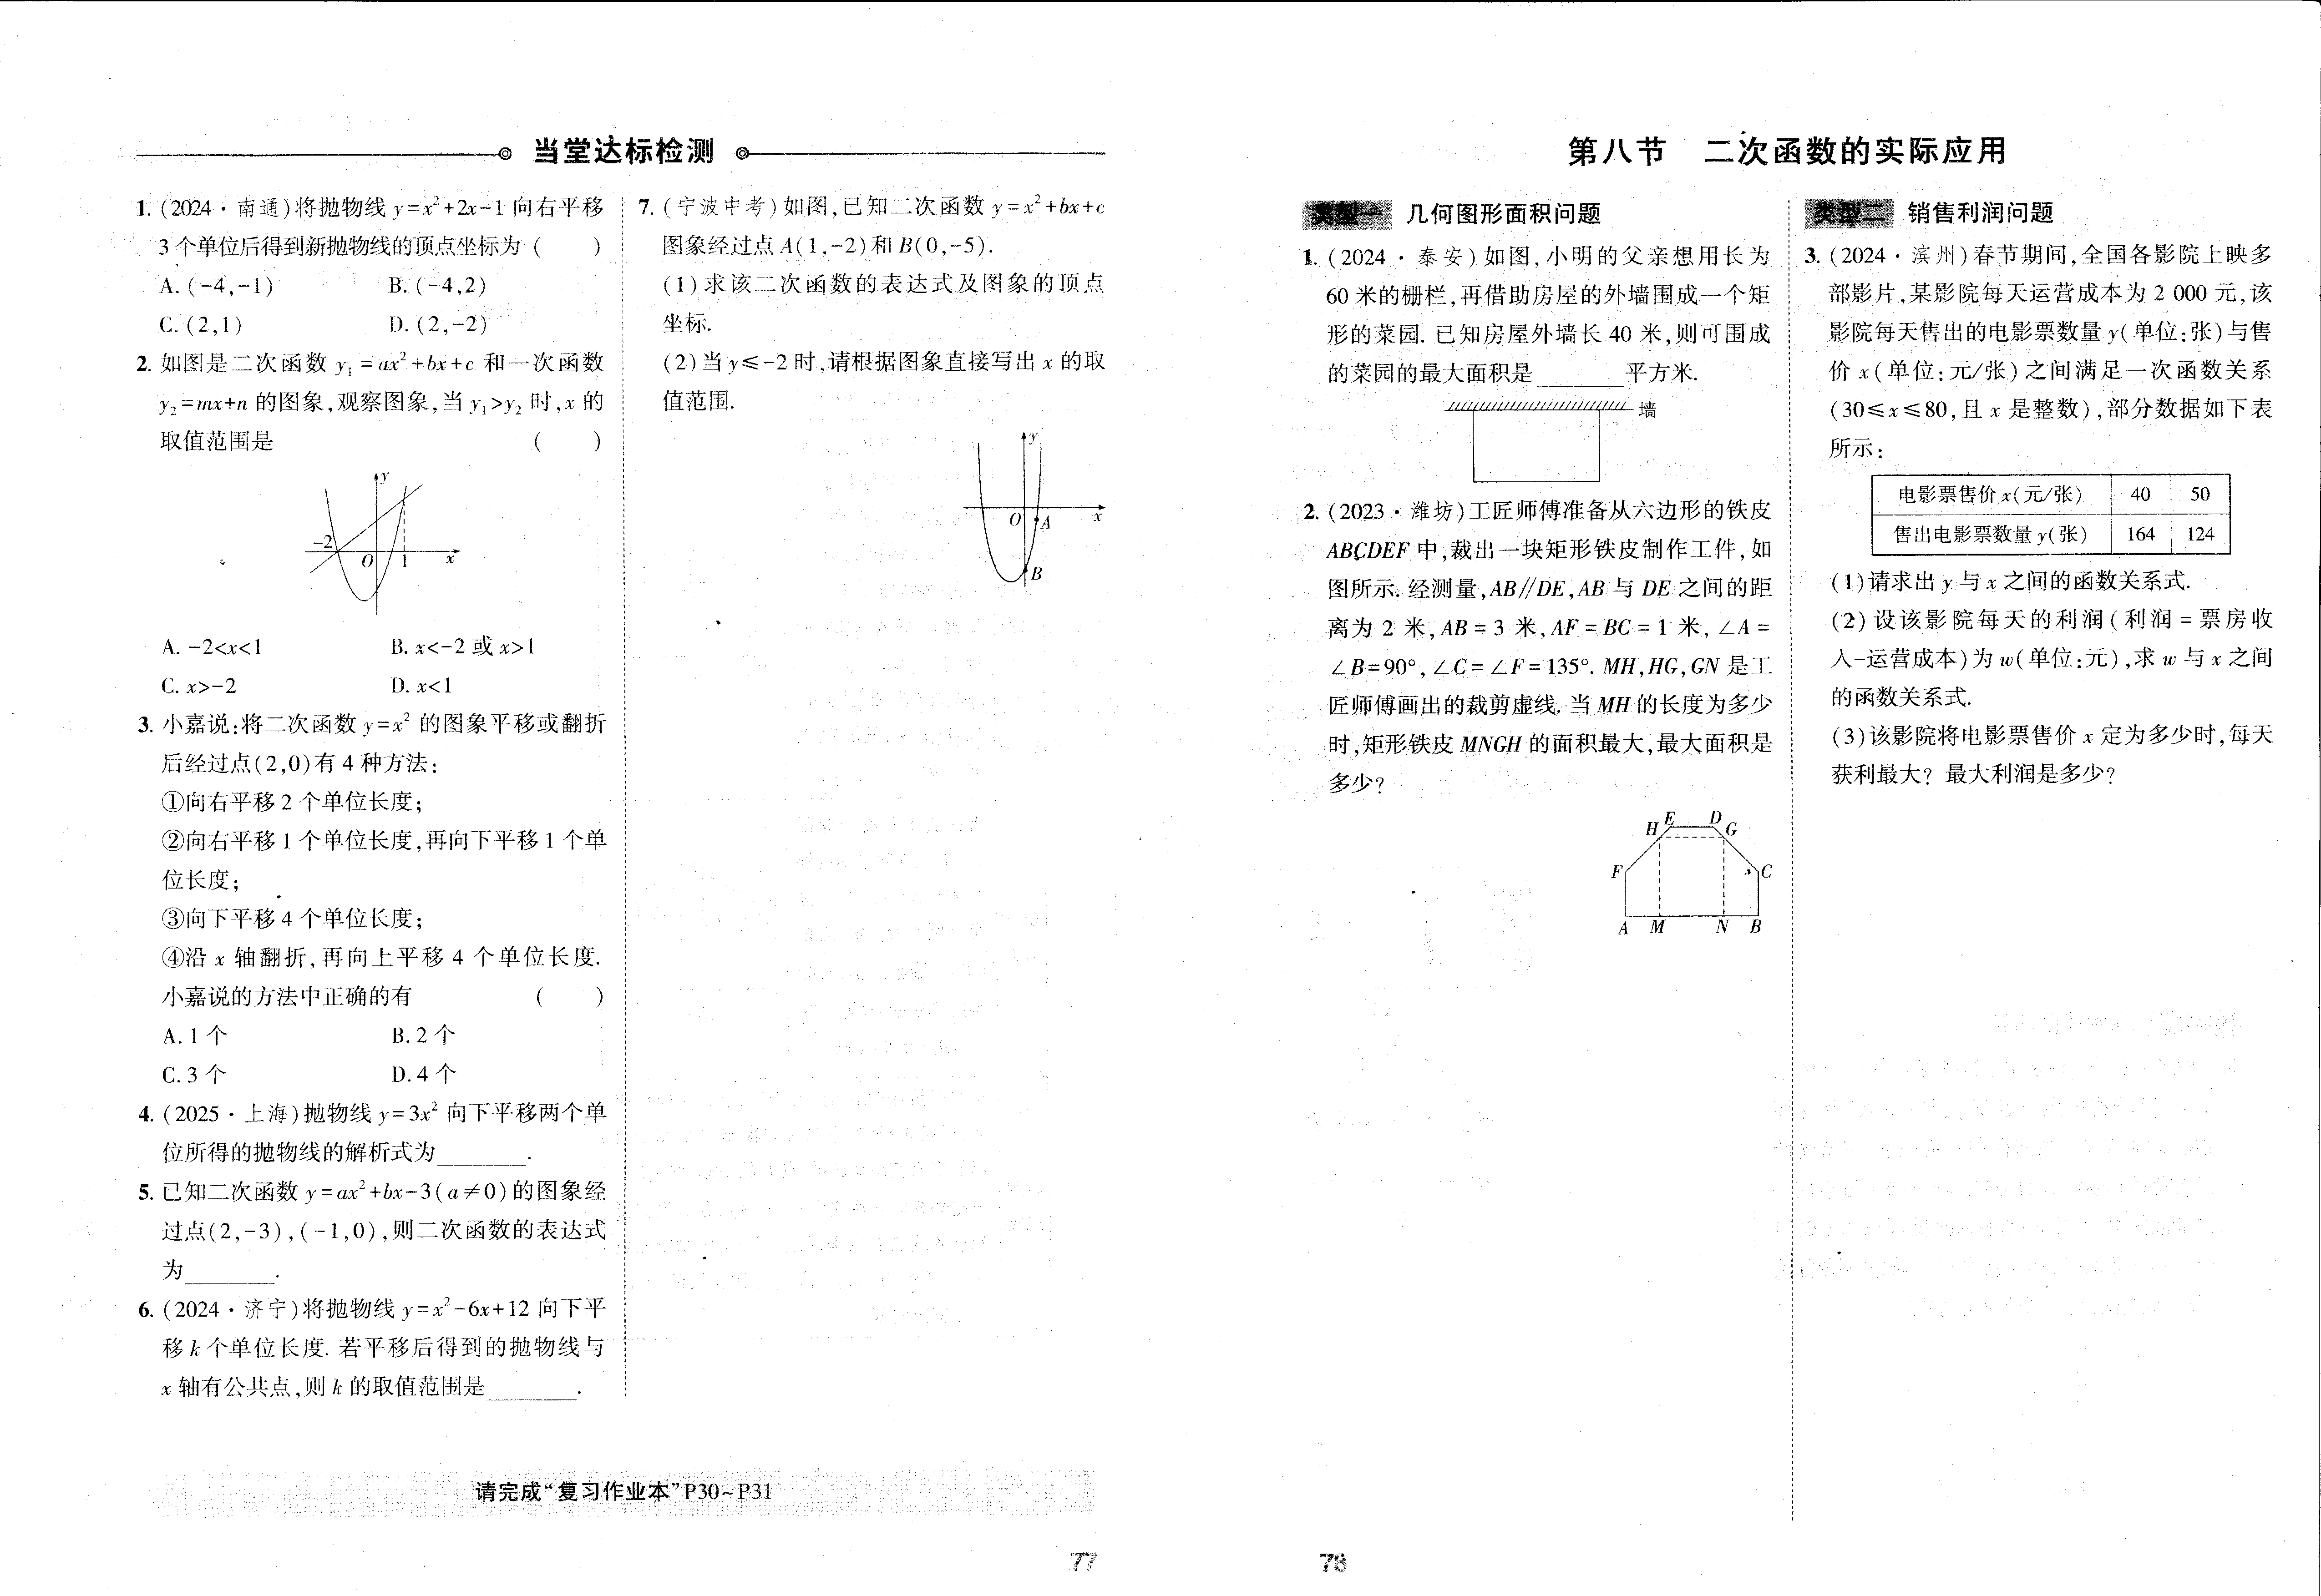 当堂达标检测
1. (2024·南通)将抛物线 y=x²+2x-1 向右平移
3个单位后得到新抛物线的顶点坐标为 (  )
A. (-4,-1)  B. (-4,2)
C. (2,1)  D. (2,-2)
2. 如图是二次函数 y₁=ax²+bx+c 和一次函数
y₂=mx+n 的图象,观察图象,当 y₁>y₂ 时,x 的
取值范围是 (  )
y
-2 O 1 x
A. -2<x<1  B. x<-2 或 x>1
C. x>-2  D. x<1
3. 小嘉说:将二次函数 y=x² 的图象平移或翻折
后经过点(2,0)有 4 种方法:
①向右平移 2 个单位长度;
②向右平移 1 个单位长度,再向下平移 1 个单
位长度;
③向下平移 4 个单位长度;
④沿 x 轴翻折,再向上平移 4 个单位长度.
小嘉说的方法中正确的有 (  )
A. 1 个  B. 2 个
C. 3 个  D. 4 个
4. (2025·上海)抛物线 y=3x² 向下平移两个单
位所得的抛物线的解析式为________.
5. 已知二次函数 y=ax²+bx-3(a≠0)的图象经
过点(2,-3),(-1,0),则二次函数的表达式
为________.
6. (2024·济宁)将抛物线 y=x²-6x+12 向下平
移 k 个单位长度. 若平移后得到的抛物线与
x 轴有公共点,则 k 的取值范围是________.
7. (宁波中考)如图,已知二次函数 y=x²+bx+c
图象经过点 A(1,-2)和 B(0,-5).
(1)求该二次函数的表达式及图象的顶点
坐标.
(2)当 y≤-2 时,请根据图象直接写出 x 的取
值范围.
y
O A x
B
请完成“复习作业本”P30~P31
77
第八节 二次函数的实际应用
类型一 几何图形面积问题
1. (2024·泰安)如图,小明的父亲想用长为
60 米的栅栏,再借助房屋的外墙围成一个矩
形的菜园. 已知房屋外墙长 40 米,则可围成
的菜园的最大面积是________平方米.
墙
2. (2023·潍坊)工匠师傅准备从六边形的铁皮
ABCDEF 中,裁出一块矩形铁皮制作工件,如
图所示. 经测量,AB∥DE,AB 与 DE 之间的距
离为 2 米,AB=3 米,AF=BC=1 米,∠A=
∠B=90°,∠C=∠F=135°. MH,HG,GN 是工
匠师傅画出的裁剪虚线. 当 MH 的长度为多少
时,矩形铁皮 MNGH 的面积最大,最大面积是
多少?
E D
H G
F C
A M N B
类型二 销售利润问题
3. (2024·滨州)春节期间,全国各影院上映多
部影片,某影院每天运营成本为 2 000 元,该
影院每天售出的电影票数量 y(单位:张)与售
价 x(单位:元/张)之间满足一次函数关系
(30≤x≤80,且 x 是整数),部分数据如下表
所示:
电影票售价 x(元/张) 40 50
售出电影票数量 y(张) 164 124
(1)请求出 y 与 x 之间的函数关系式.
(2)设该影院每天的利润(利润=票房收
入-运营成本)为 w(单位:元),求 w 与 x 之间
的函数关系式.
(3)该影院将电影票售价 x 定为多少时,每天
获利最大? 最大利润是多少?
78